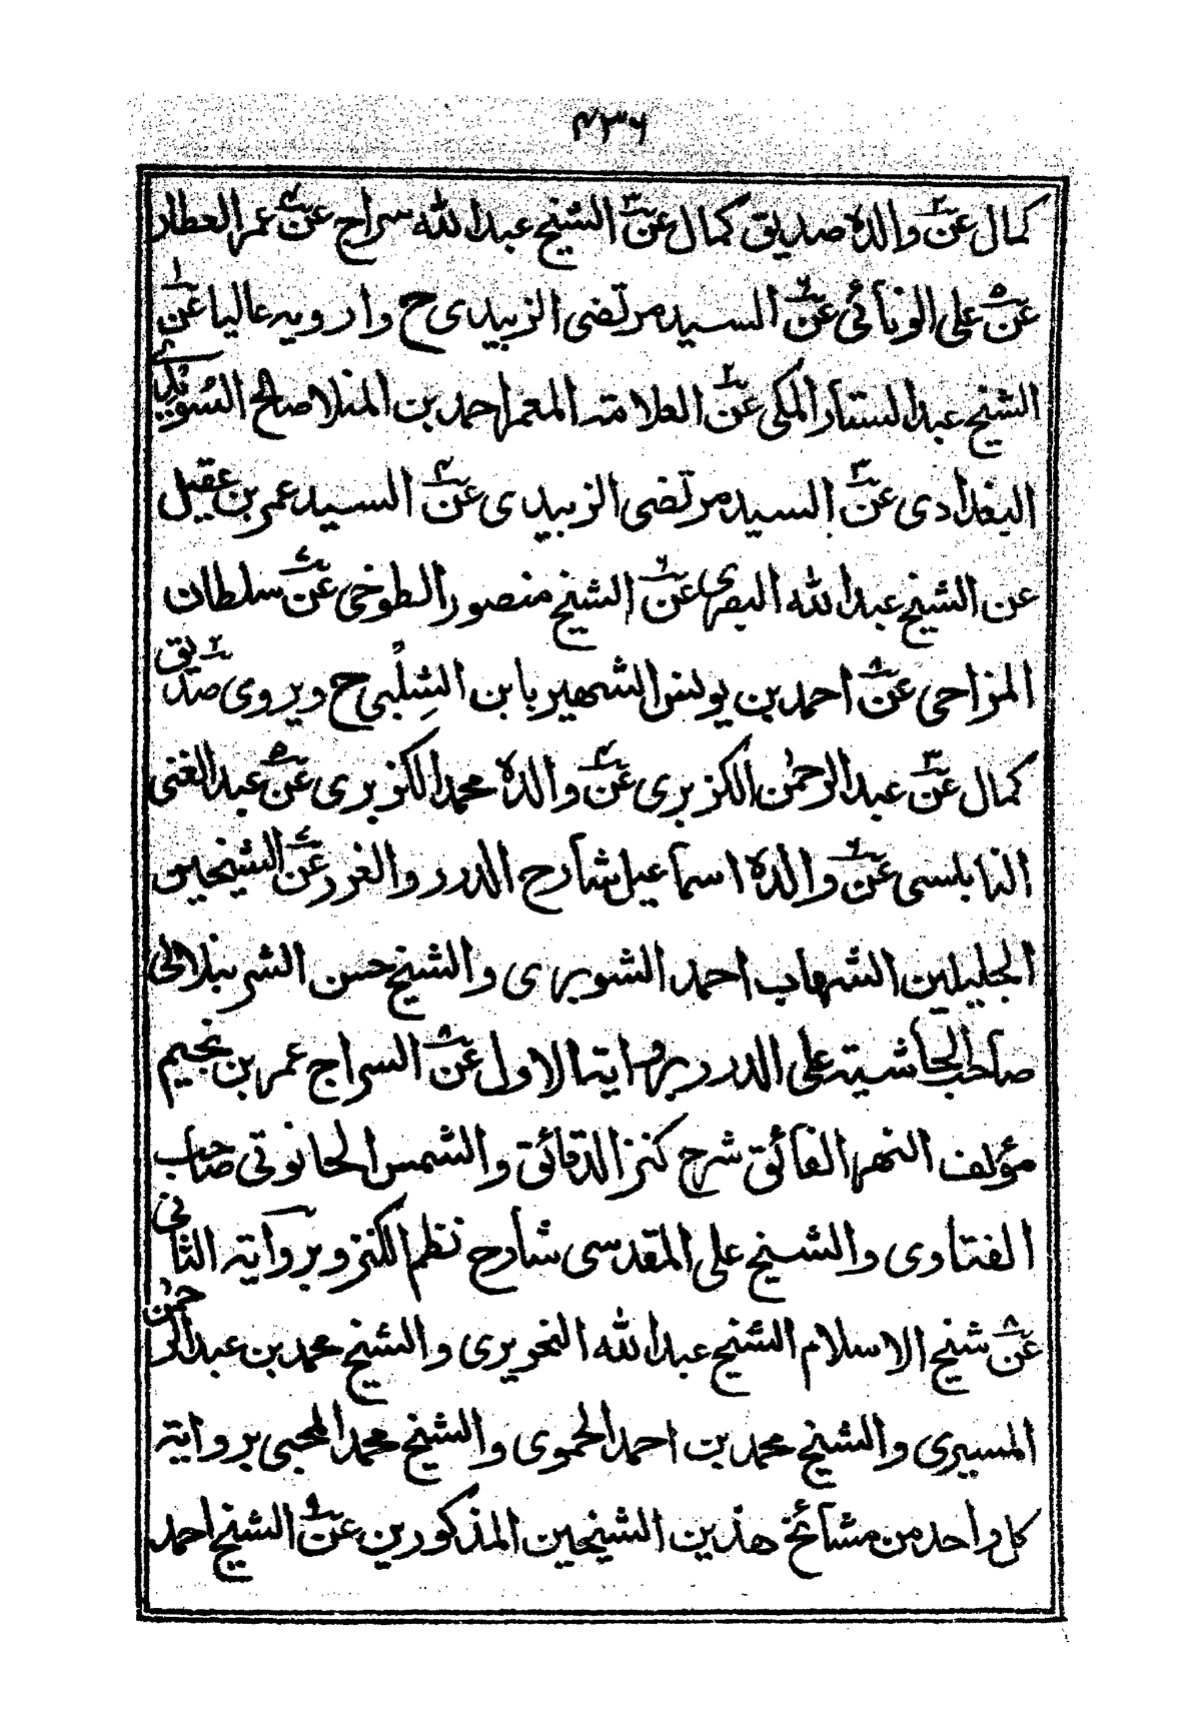 ۴۳۶
كمال عن۲ والده صديق كمال عن۳ الشيخ عبدالله سراج عن۴ عمر العطار
عن۵ على الونآئى عن۶ السيد مرتضى الزبيدى ح وارويه عاليا عن۱
الشيخ عبد الستار المكى عن۲ العلامة المعمر احمد بن المنلا صالح السُّوَيْدى
البغدادى عن۳ السيد مرتضى الزبيدى عن۴ السيد عمر بن عقيل
عن الشيخ عبدالله البصرى عن۶ الشيخ منصور الطوخى عن۷ سلطان
المزاحى عن۸ احمد بن يونس الشهير بابن الشِلْبى ح ويروى صديق۲
كمال عن۳ عبد الرحمٰن الكزبرى عن۴ والده محمد الكزبرى عن۵ عبد الغنى
النابلسى عن۶ والده اسمآعيل شارح الدرر والغرر عن۷ الشيخين
الجليلين الشهاب احمد الشوبرى والشيخ حسن الشرنبلالى
صاحب الحاشية على الدرر برواية الاول عن۸ السراج عمر بن نجيم
مؤلف النهر الفآئق شرح كنز الدقائق والشمس الحانوتى صاحب
الفتاوى والشيخ على المقدسى شارح نظم الكنز وبرواية الثانى
عن۸ شيخ الاسلام الشيخ عبدالله النحريرى والشيخ محمد بن عبدالرحمٰن
المسيرى والشيخ محمد بن احمد الحموى والشيخ محمد المحبى برواية
كل واحد من مشآئخ هذين الشيخين المذكورين عن۹ الشيخ احمد